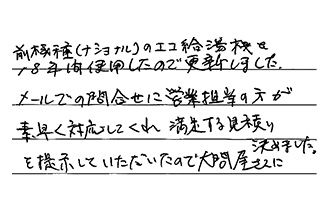 前機種(ナショナル)のエコ給湯機を
18年間使用したので更新しました.
メールでの問合せに営業担当の方が
素早く対応してくれ 満足する見積り
を提示していただいたので大問屋さんに
決めました。